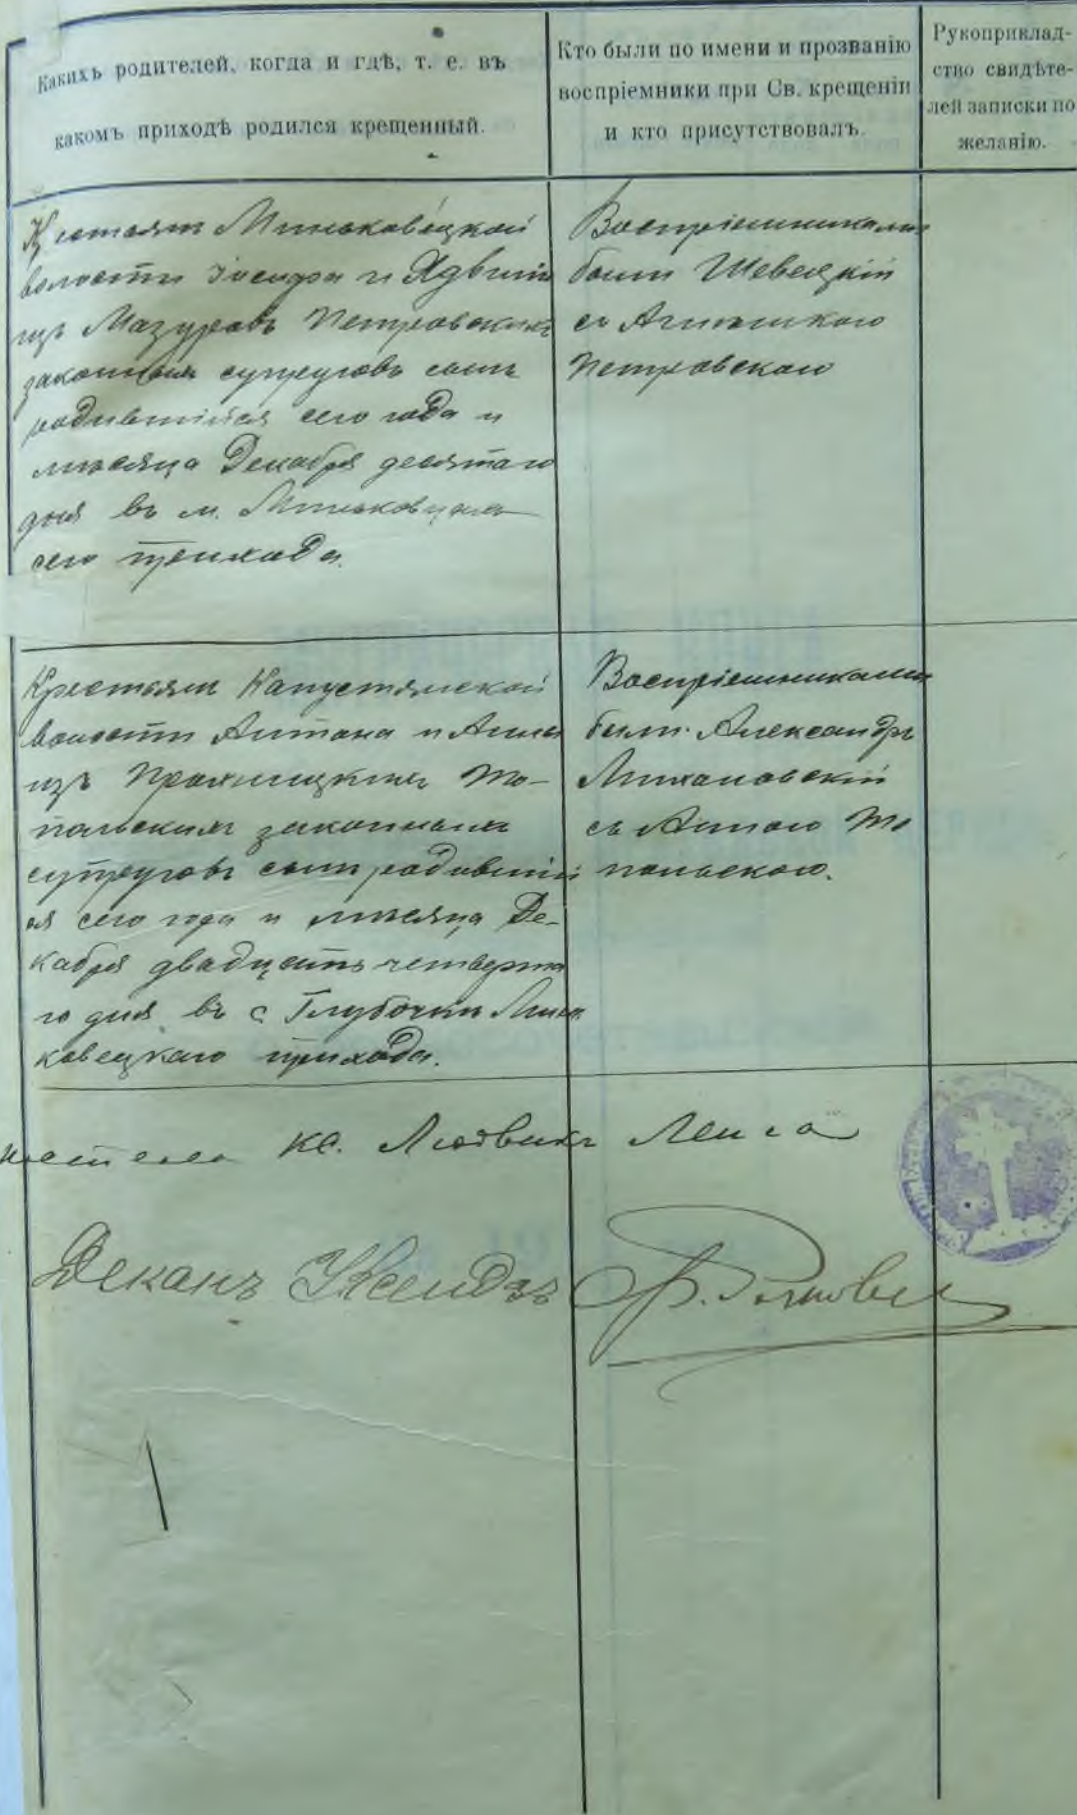 Какихъ родителей, когда и гдѣ, т. е. въ
какомъ приходѣ родился крещенный.
Кто были по имени и прозванію
воспріемники при Св. крещеніи
и кто присутствовалъ.
Рукоприклад-
ство свидѣте-
лей записки по
желанію.
Миньковецкой
волости Іосифа и Ядвиги
изъ Мазуровъ Петровскихъ
законныхъ супруговъ сынъ
родившійся сего года и
мѣсяца Декабря десятаго
дня въ м. Миньковцахъ
сего прихода.
Воспріемниками
были Шевецкій
съ
Петровскою
Крестьянъ Капустянской
волости Антона и Анны
изъ То-
польскихъ законныхъ
супруговъ сынъ родившій
ся сего года и мѣсяца Де-
кабря двадцать четверта
го дня въ с Глубочки Минь
ковецкаго прихода.
Воспріемниками
были Александръ
Михановскій
съ Анною То
польскою.
кс. Людвикъ
Деканъ Ксендзъ